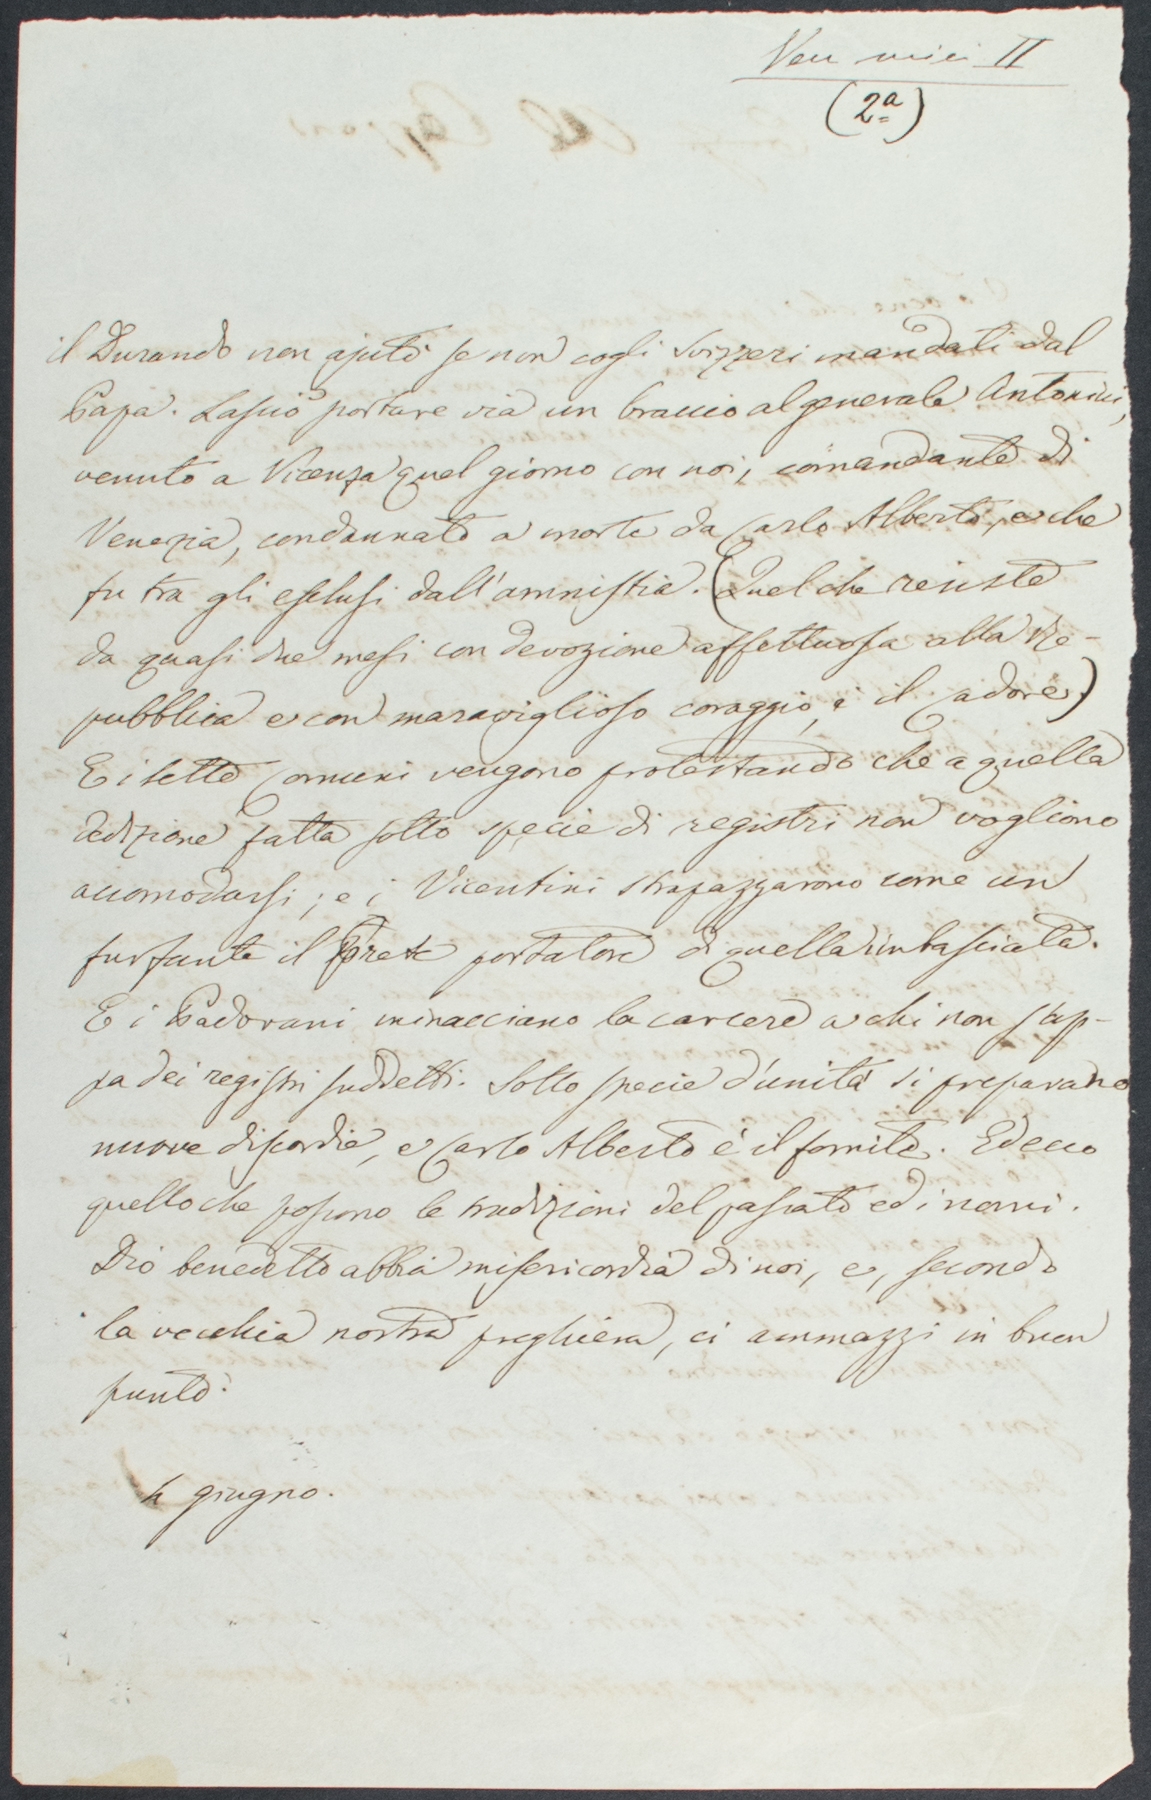 II
(2ª)
il Durando non ajutò se non cogli svizzeri mandati dal
Papa. Lasciò portare via un braccio al generale Antonini,
venuto a Vicenza quel giorno con noi, comandante di
Venezia, condannato a morte da Carlo Alberto, e che
fu tra gli esclusi dall'amnistia. (Quel che resiste
da quasi due mesi con devozione affettuosa alla Re-
pubblica e con maraviglioso coraggio, è il Cadore)
E i sette Comuni vengono protestando che a quella
dedizione fatta sotto specie di registri non vogliono
accomodarsi; e i Vicentini strapazzarono come un
furfante il Prete portatore di quella imbasciata.
E i Padovani minacciano la carcere a chi non s'ap-
pa dei registri suddetti. Sotto specie d'unità si preparano
nuove discordie, e Carlo Alberto è il fomite. Ed ecco
quello che possono le tradizioni del passato ed i nomi.
Dio benedetto abbia misericordia di noi, e, secondo
la vecchia nostra preghiera, ci ammazzi in buon
punto.
4 giugno.